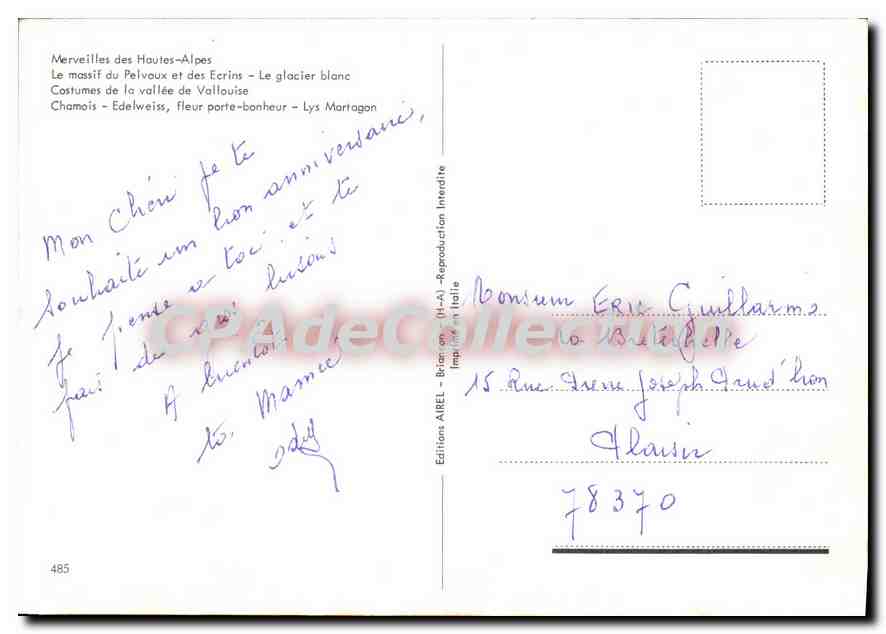 Merveilles des Hautes-Alpes
Le massif du Pelvoux et des Ecrins - Le glacier blanc
Costumes de la vallée de Vallouise
Chamois - Edelweiss, fleur porte-bonheur - Lys Martagon
Mon Chéri je te
souhaite un bon anniversaire,
Je pense a toi et te
fais de gros bisous
A bientot
ta Mamie
485
Editions AIREL - Briançon - (H-A) -Reproduction Interdite
Imprimé en Italie
Monsieur Eric Guillarme
La Bretechelle
15 Rue Pierre Joseph Prud'hon
Plaisir
78370
CPAdeCollection